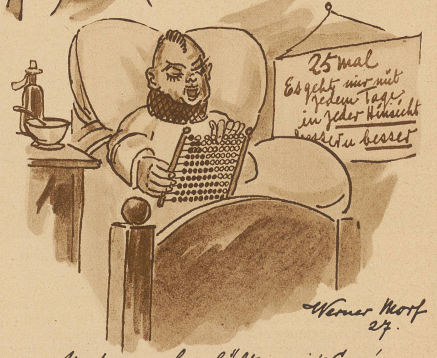 25 mal
Es geht mir mit
jedem Tage
in jeder Hinsicht
besser u besser
Werner Morf
27.